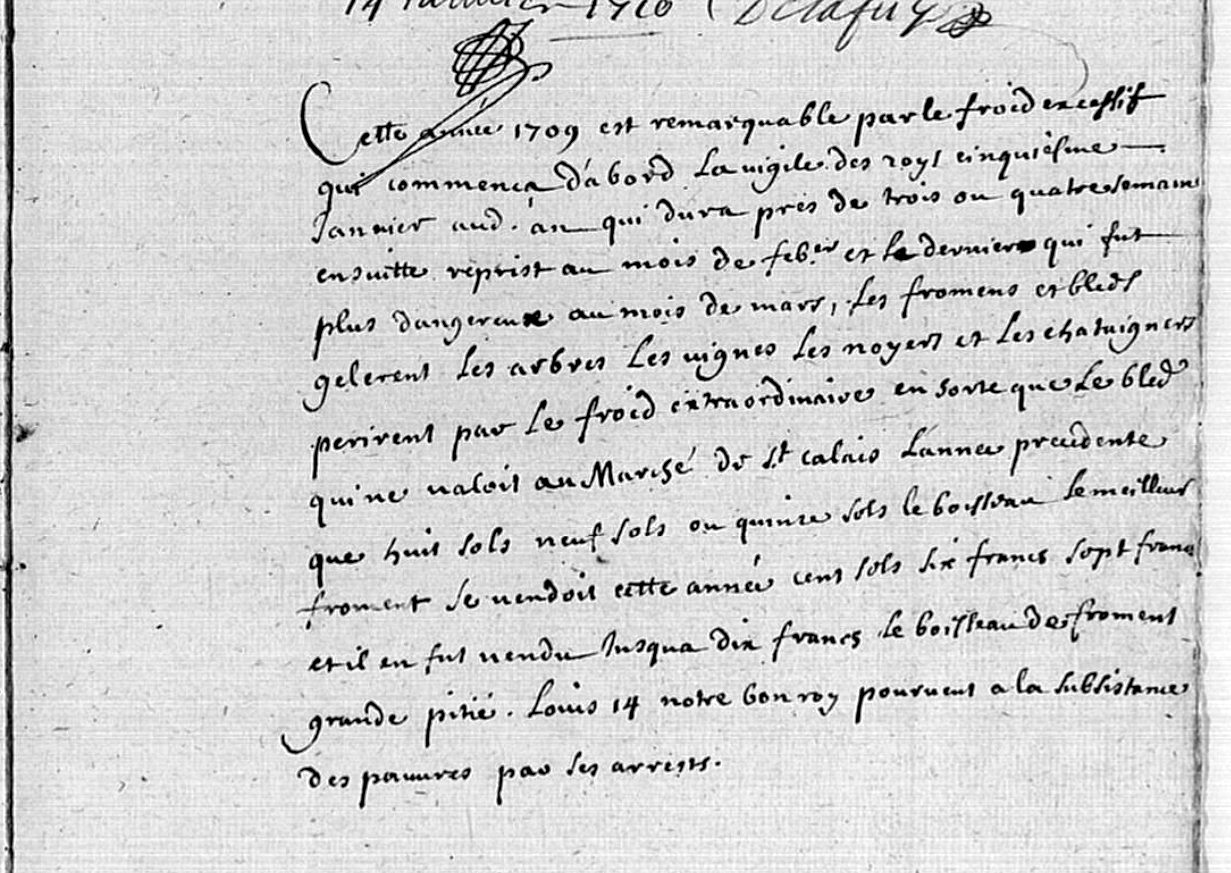 14 1710 Delafuye
Cette année 1709 est remarquable par le froid excessif
qui commença d'abord la vigile des roys cinquiésme
Janvier aud. an qui dura prés de trois ou quatre semain
ensuitte reprist au mois de feb.er et le dernier qui fut
plus dangereux au mois de mars, les fromens et bleds
gelerent les arbres les vignes les noyers et les chataigners
perirent par le froid extraordinaire en sorte que le bled
qui ne valoit au Marché de St calais l'annee precedente
que huit sols neuf sols ou quinze sols le boisseau le meilleur
froment se vendoit cette année cent sols six francs sept francs
et il en fut vendu Jusqua dix francs le boisseau de froment
grande pitié. Louis 14 notre bon roy pourveut a la subsistance
des pauvres par ses arrests.